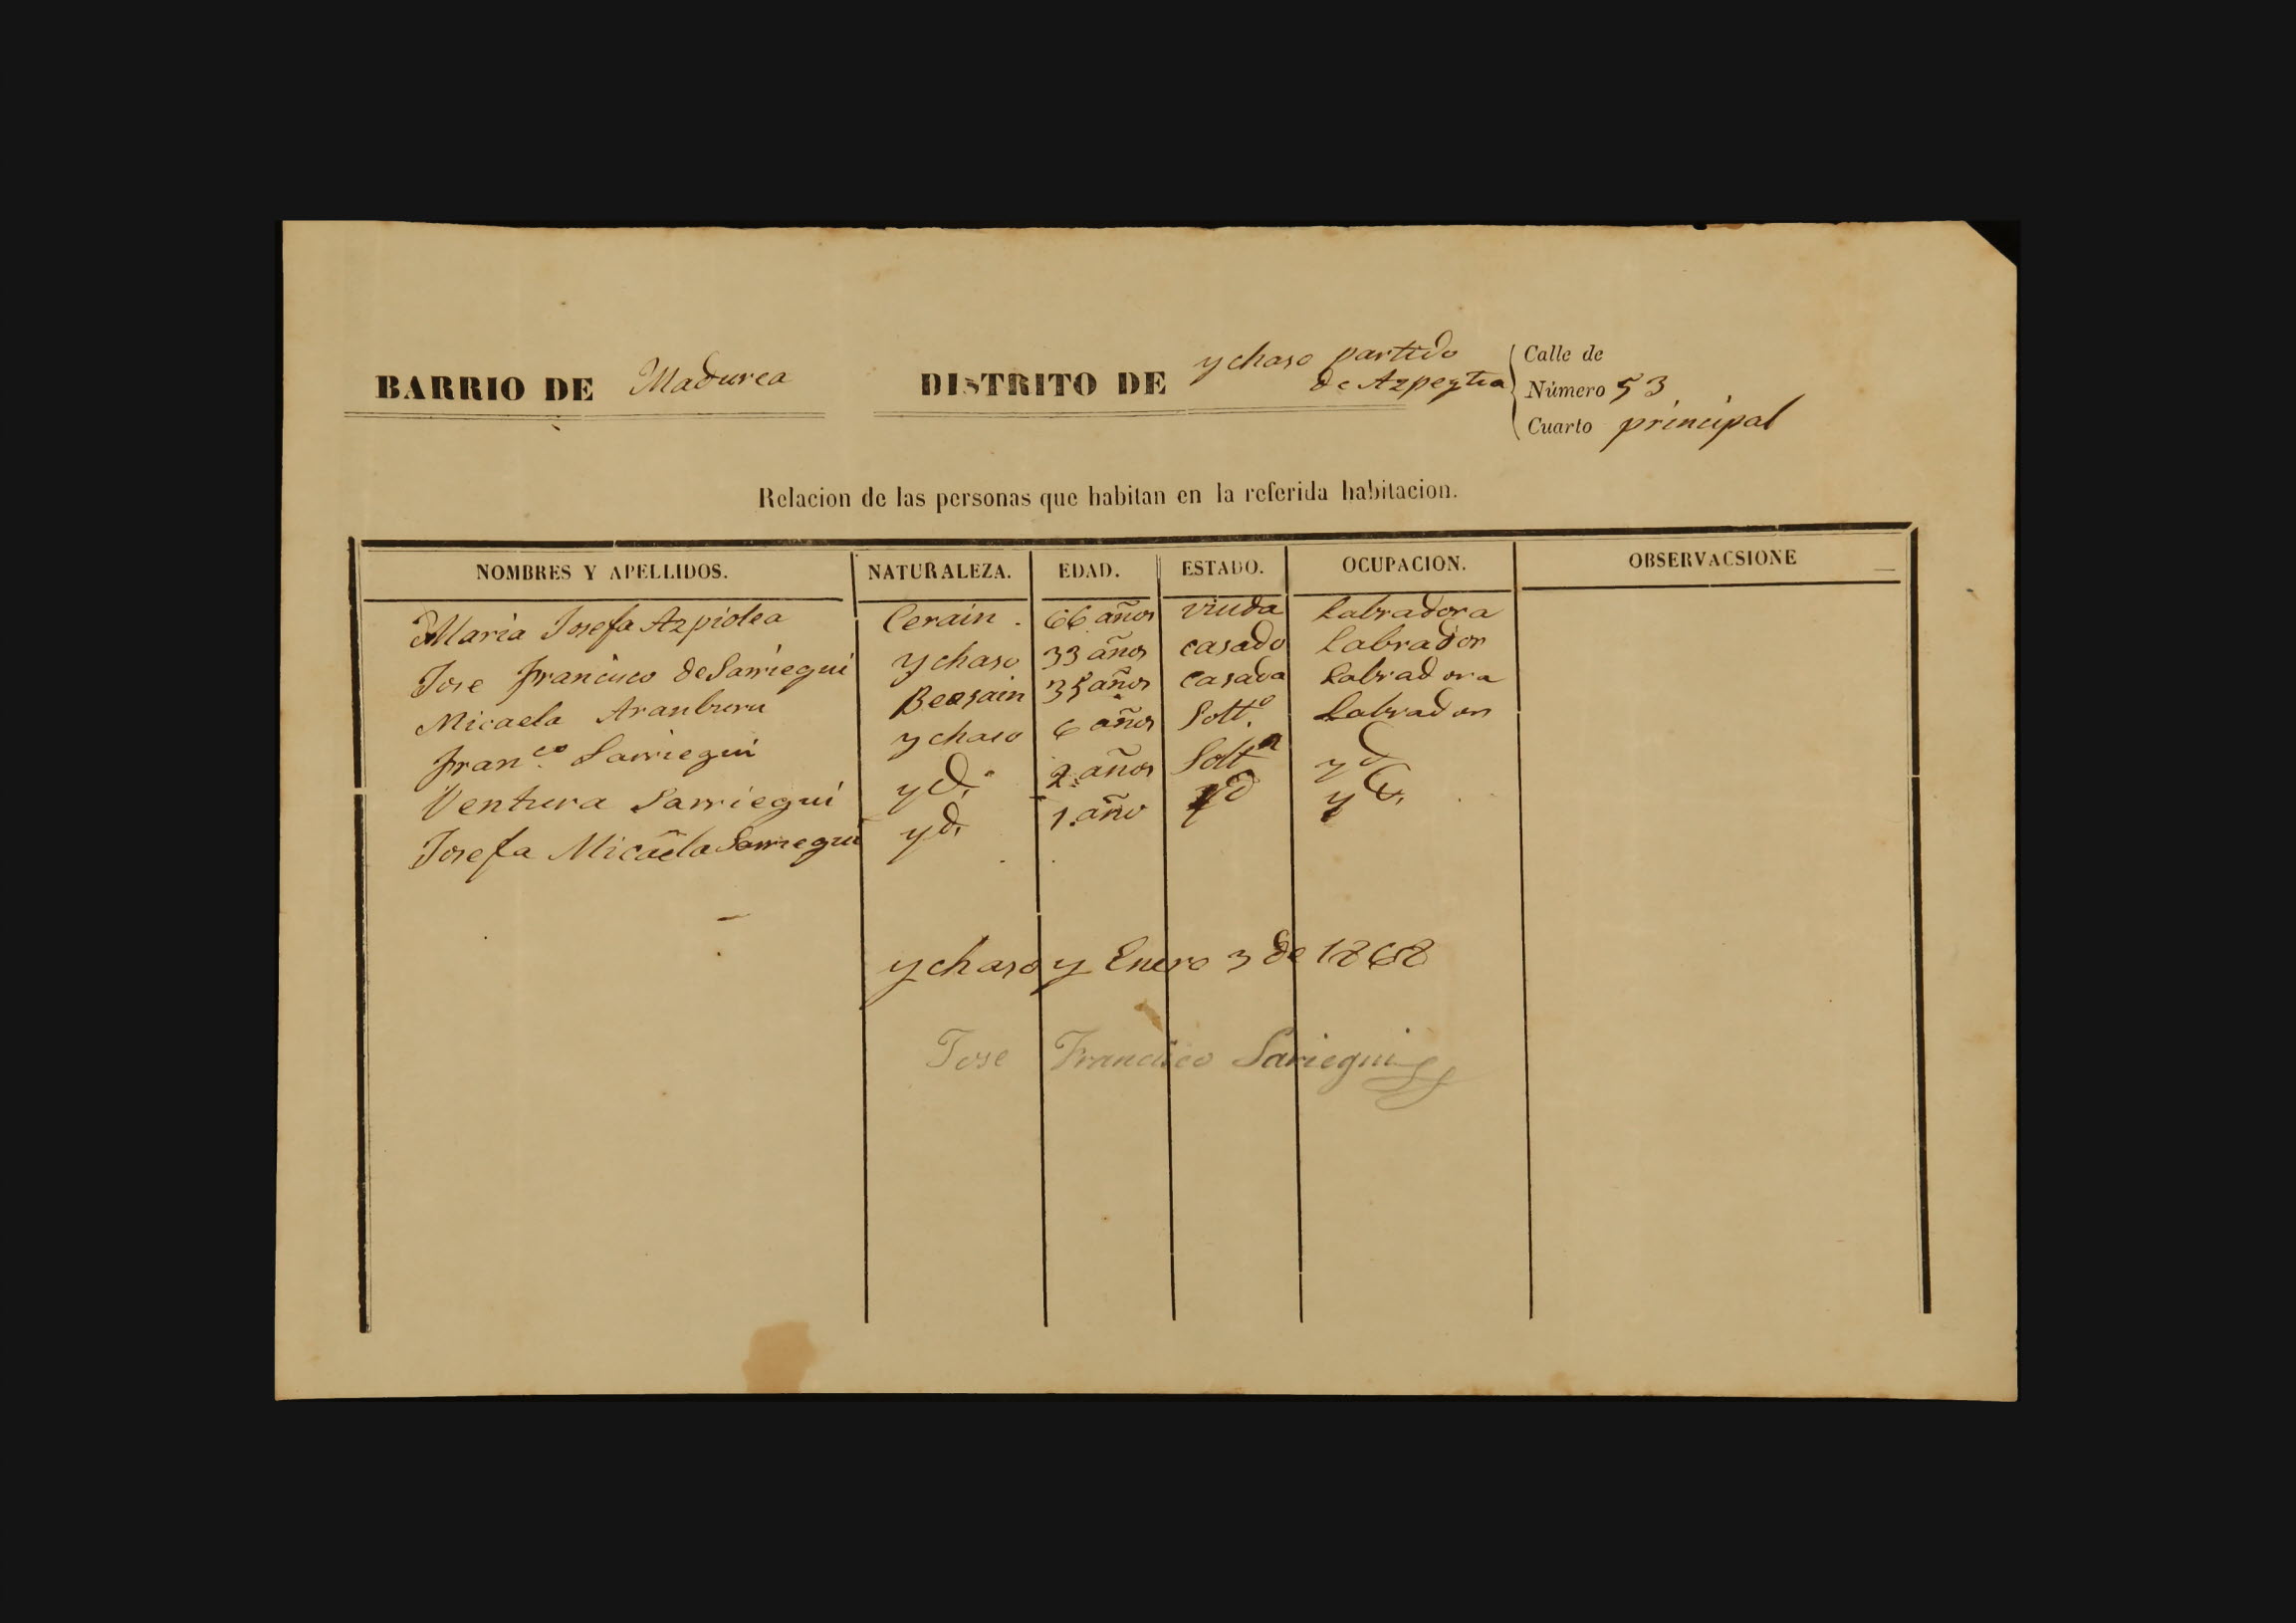 BARRIO DE Madurea DISTRITO DE ychaso partido de Azpeytia
Calle de
Número 53
Cuarto principal
Relacion de las personas que habitan en la referida habitacion.
NOMBRES Y APELLIDOS. NATURALEZA. EDAD. ESTADO. OCUPACION. OBSERVACSIONE
Maria Josefa Azpiolea Cerain. 66 años viuda Labradora
Jose Francisco de Sarriegui ychaso 33 años casado Labrador
Micaela Aranburu Beasain 35 años casada Labradora
Fran.co Sarriegui ychaso 6 años Solt.o Labrador
Ventura Sarriegui yd. 2 años Solta yd
Josefa Micaela Sarriegui yd. 1 año yd yd.
ychaso y Enero 3 de 1868
Jose Francisco Sariegui